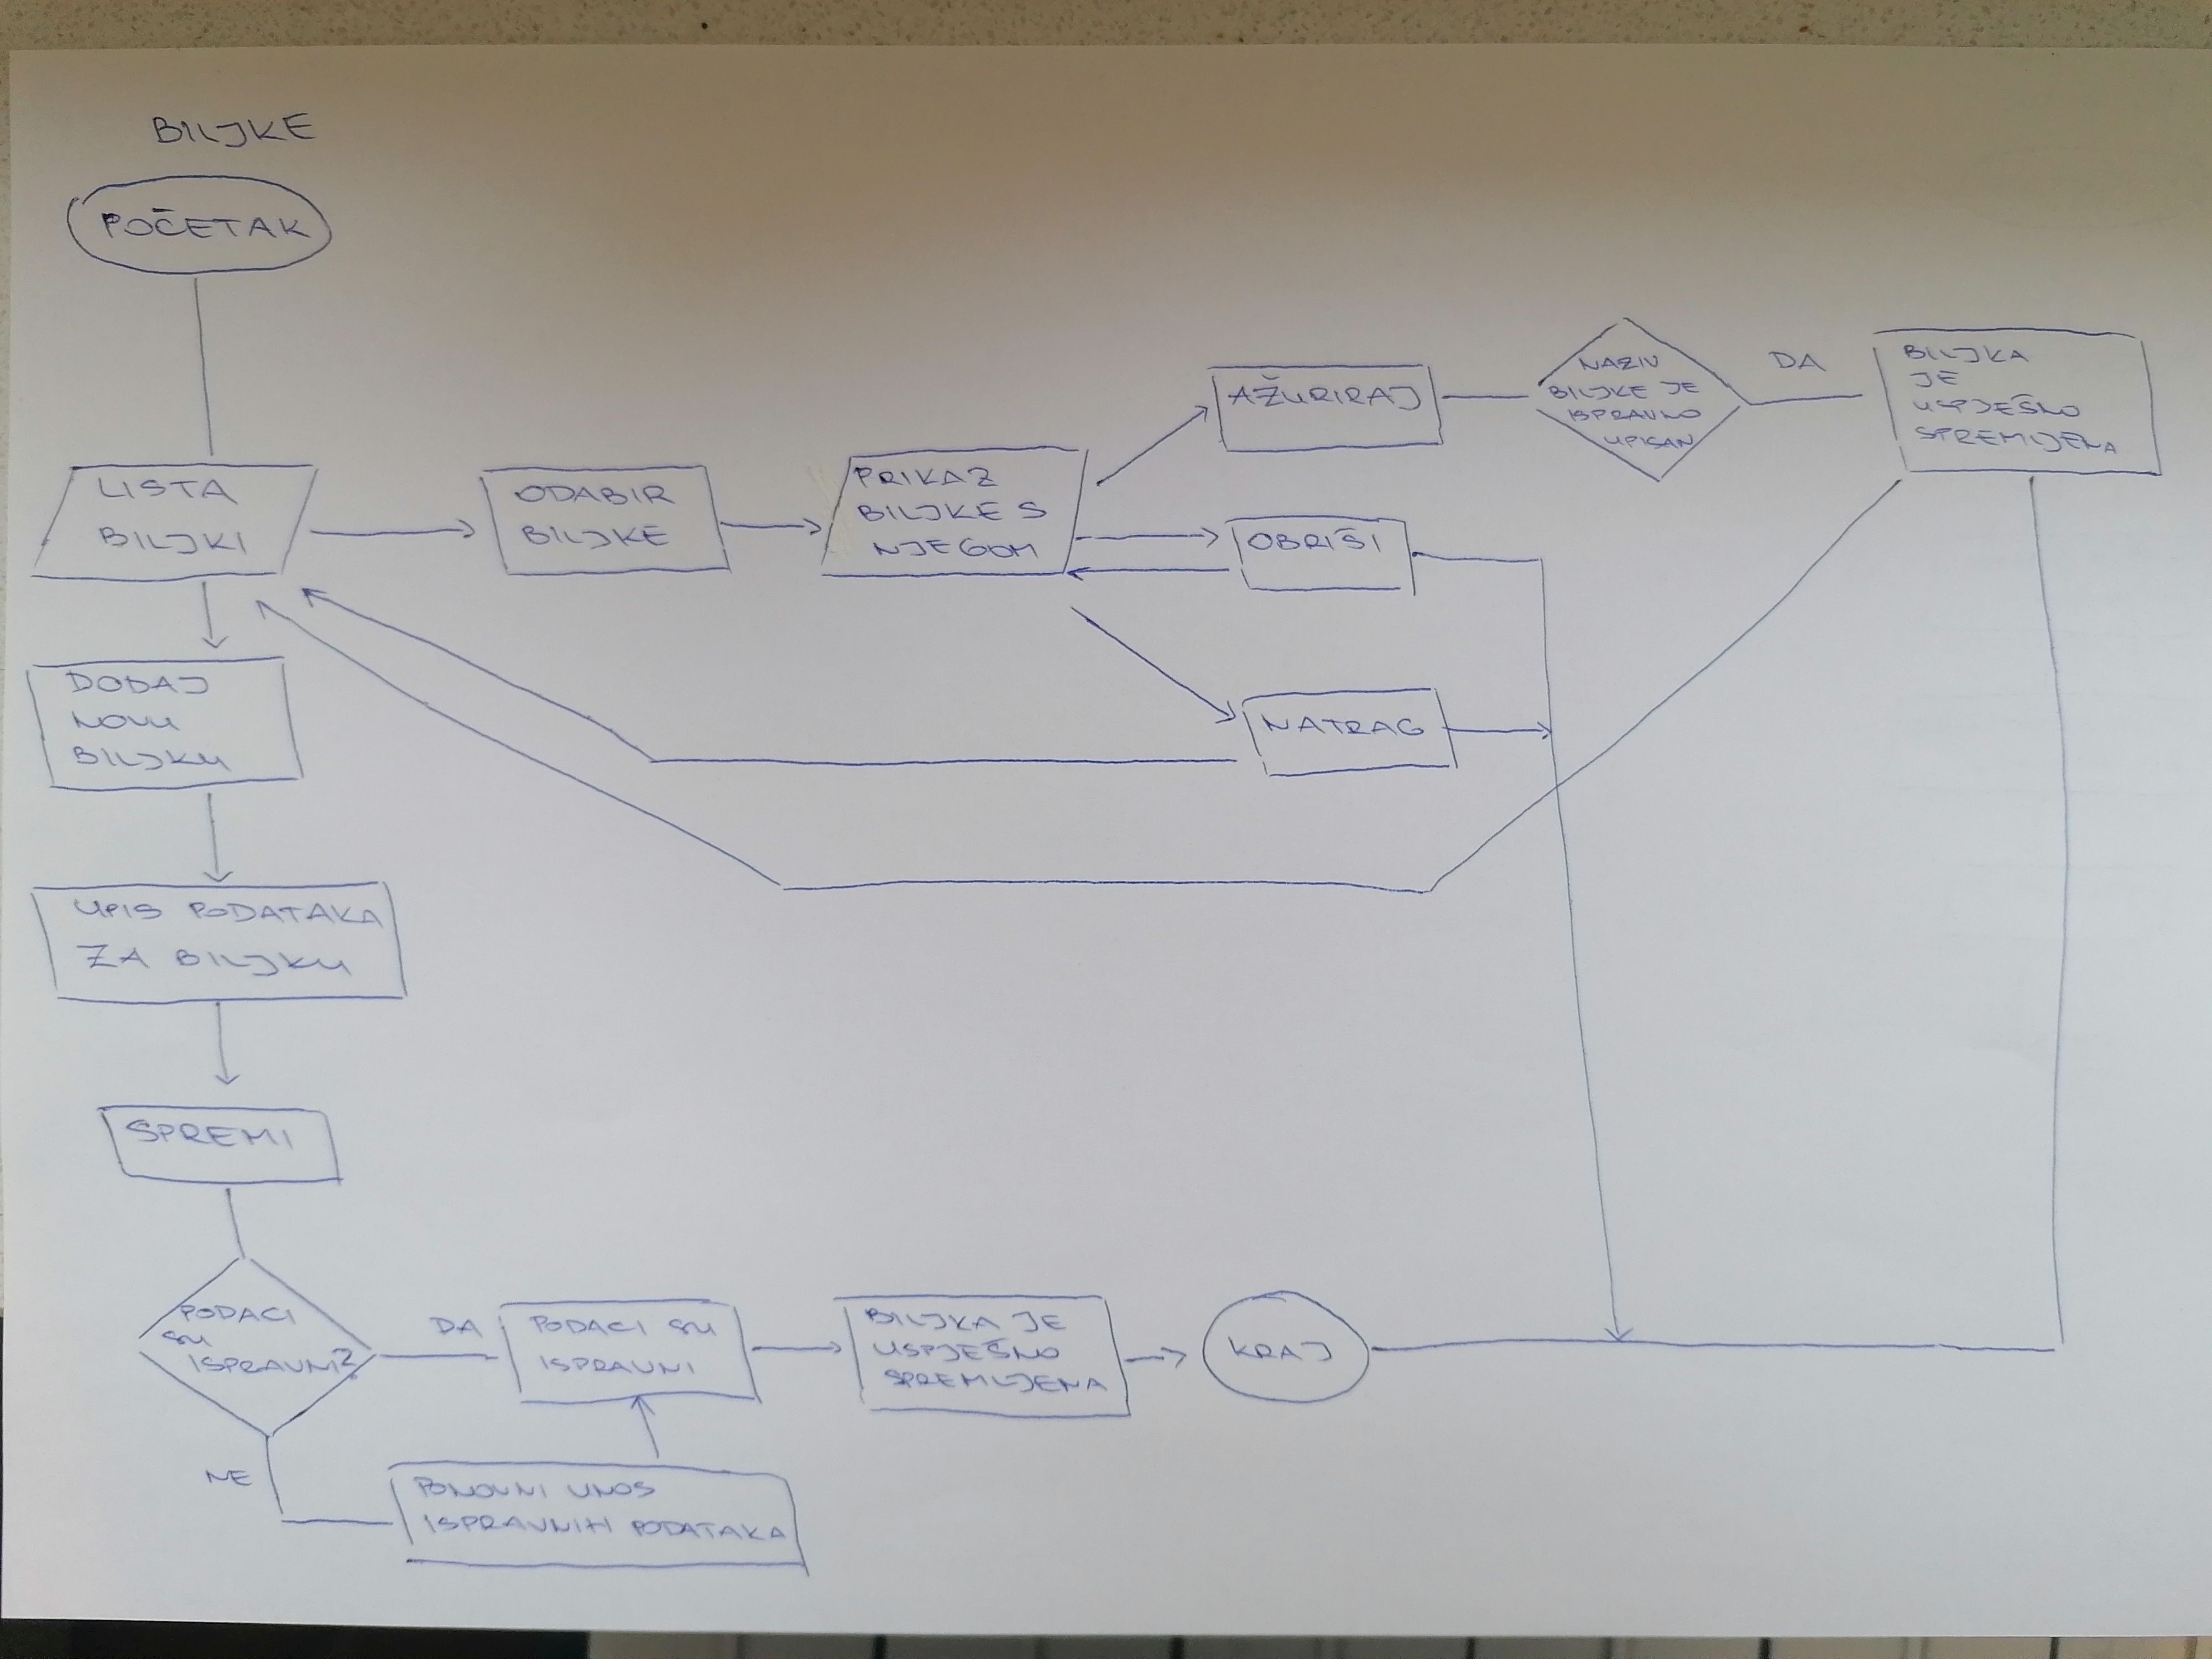 BILJKE
POČETAK
LISTA
BILJKI
ODABIR
BILJKE
PRIKAZ
BILJKE S
NJEGOM
AŽURIRAJ
NAZIV
BILJKE JE
ISPRAVNO
UPISAN
DA
BILJKA
JE
USPJEŠNO
SPREMLJENA
OBRIŠI
NATRAG
DODAJ
NOVU
BILJKU
UPIS PODATAKA
ZA BILJKU
SPREMI
PODACI
SU
ISPRAVNI?
DA
PODACI SU
ISPRAVNI
BILJKA JE
USPJEŠNO
SPREMLJENA
KRAJ
NE
PONOVNI UNOS
ISPRAVNIH PODATAKA